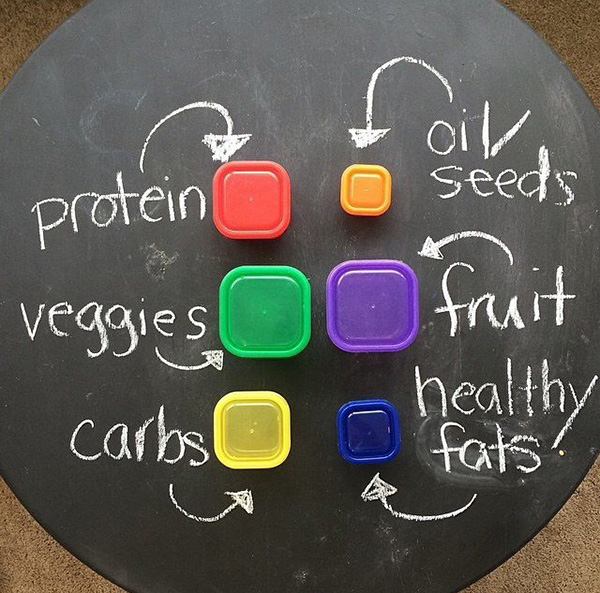 protein
oil/
seeds
veggies
fruit
carbs
healthy
fats